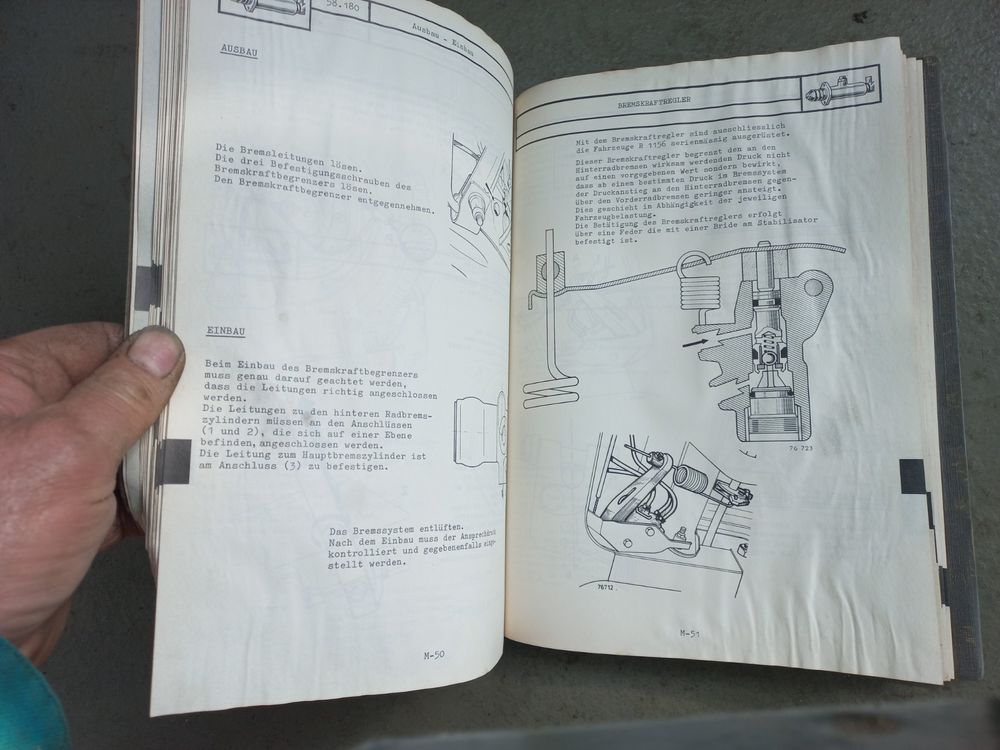 58.180
Ausbau - Einbau
AUSBAU
Die Bremsleitungen lösen.
Die drei Befestigungsschrauben des
Bremskraftbegrenzers lösen.
Den Bremskraftbegrenzer entgegennehmen.
EINBAU
Beim Einbau des Bremskraftbegrenzers
muss genau darauf geachtet werden,
dass die Leitungen richtig angeschlossen
werden.
Die Leitungen zu den hinteren Radbrems-
zylindern müssen an den Anschlüssen
(1 und 2), die sich auf einer Ebene
befinden, angeschlossen werden.
Die Leitung zum Hauptbremszylinder ist
am Anschluss (3) zu befestigen.
Das Bremssystem entlüften.
Nach dem Einbau muss der Ansprechdruck
kontrolliert und gegebenenfalls
stellt werden.
M-50
BREMSKRAFTREGLER
Mit dem Bremskraftregler sind ausschliesslich
die Fahrzeuge R 1156 serienmässig ausgerüstet.
Dieser Bremskraftregler begrenzt den an den
Hinterradbremsen wirksam werdenden Druck nicht
auf einen vorgegebenen Wert sondern bewirkt,
dass ab einem bestimmten Druck im Bremssystem
der Druckanstieg an den Hinterradbremsen gegen-
über den Vorderradbremsen geringer ansteigt.
Dies geschieht in Abhängigkeit der jeweiligen
Fahrzeugbelastung.
Die Betätigung des Bremskraftreglers erfolgt
über eine Feder die mit einer Bride am Stabilisator
befestigt ist.
76 723
76712
M-51